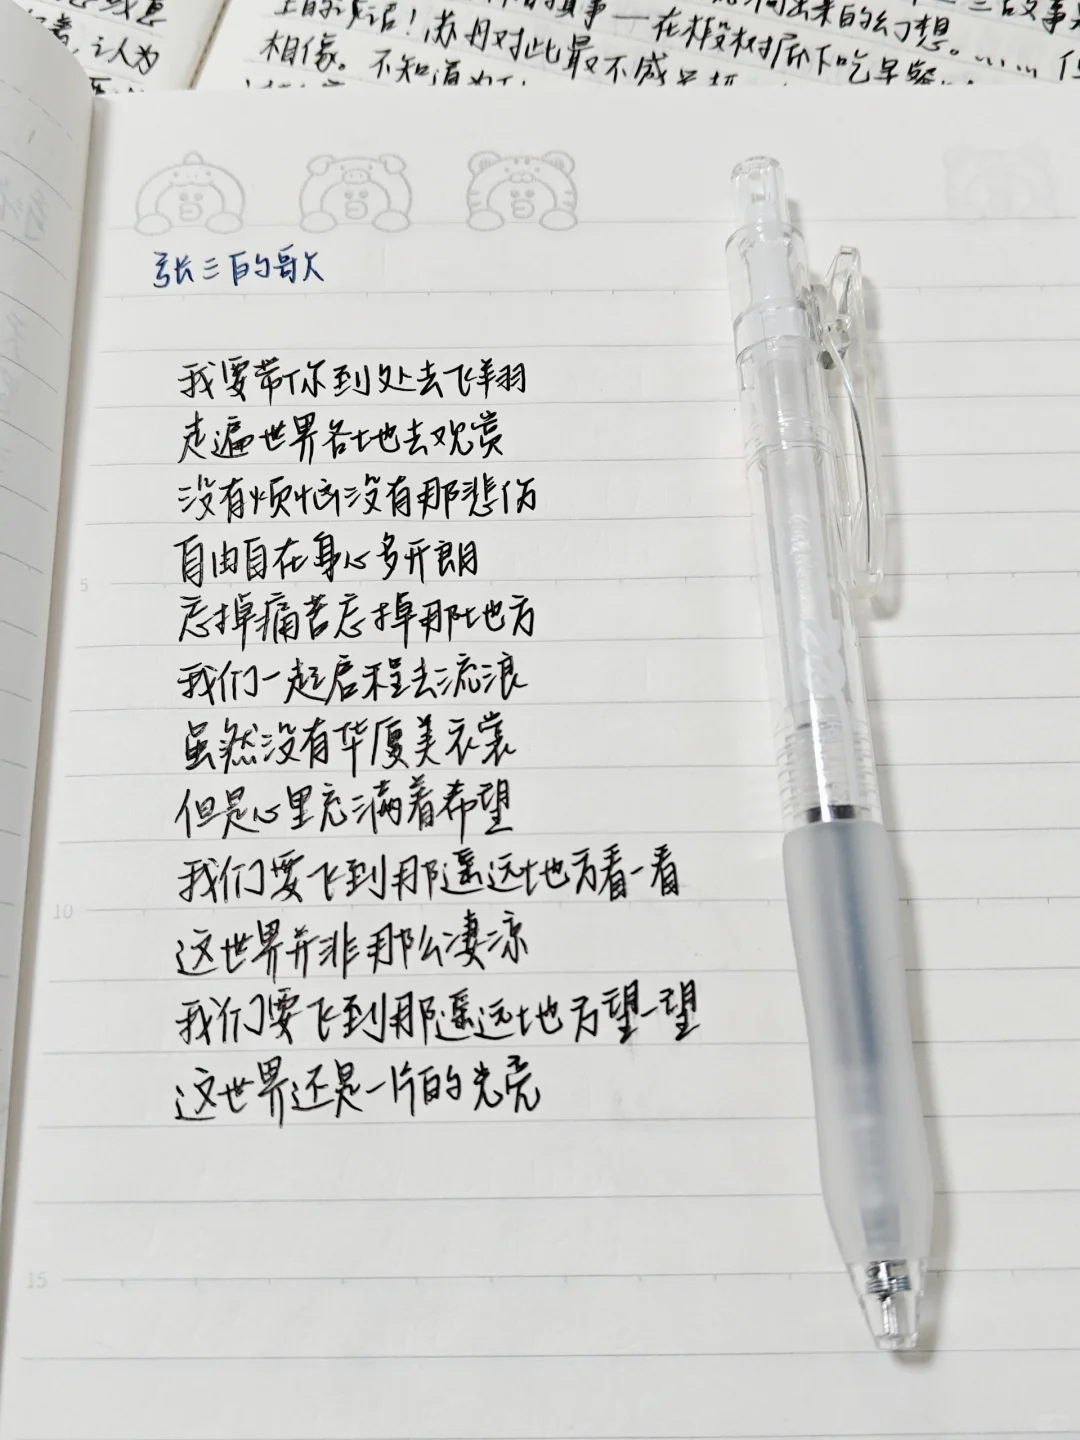 上的
事——在
出来的幻想。……
故事
认为
相像。不知道为
对此最不感
在椴树底下吃早餐
张三的歌
我要带你到处去飞翔
走遍世界各地去观赏
没有烦恼没有那悲伤
自由自在身心多开朗
忘掉痛苦忘掉那地方
我们一起启程去流浪
虽然没有华厦美衣裳
但是心里充满着希望
我们要飞到那遥远地方看一看
这世界并非那么凄凉
我们要飞到那遥远地方望一望
这世界还是一片的光亮
5
10
15